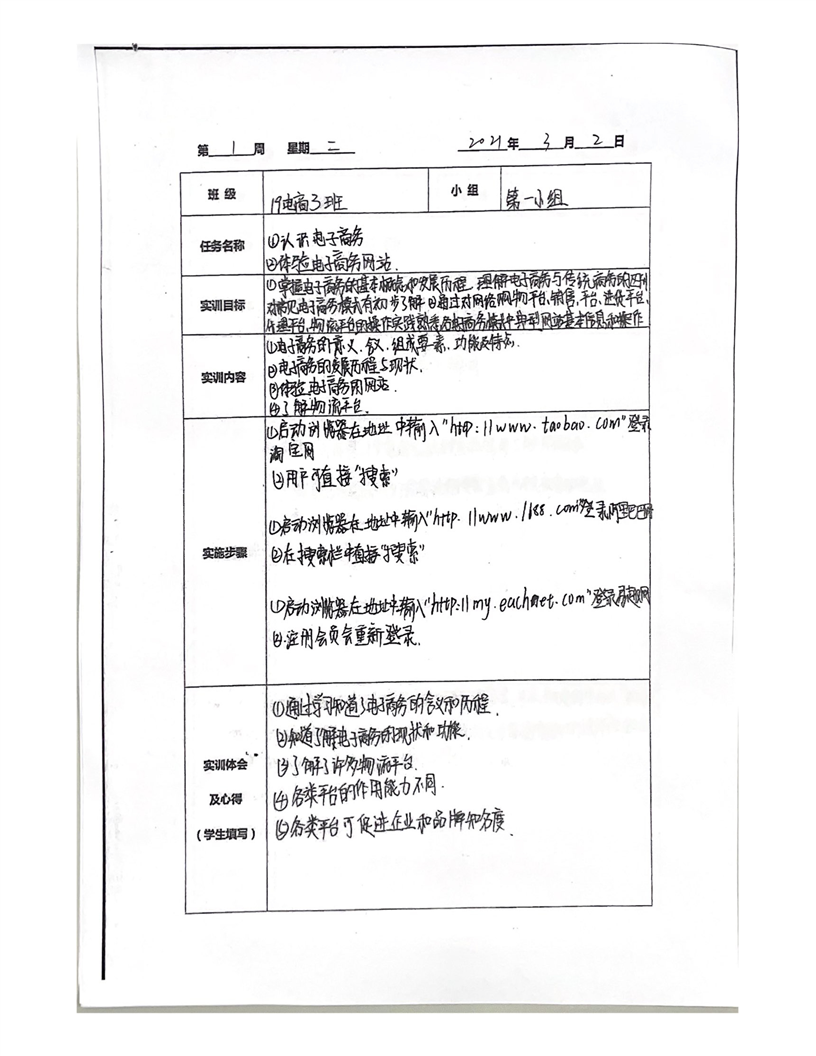 第 1 周 星期 二 2021 年 3 月 2 日
班 级 19电商3班 小 组 第一小组
任务名称 ①认识电子商务
②体验电子商务网站.
实训目标 ①掌握电子商务的基本概念和发展历程, 理解电子商务与传统商务的区别
对常见电子商务模式有初步了解②通过对网络购物平台,销售,平台,进货平台,
平台,物流平台的操作实践熟悉各电商务模式中典型网站基本信息和操作
实训内容 ①电子商务的意义、含义、组成要素、功能及特点.
②电子商务的发展历程与现状.
③体验电子商务网站.
④了解物流平台.
实施步骤 ①启动浏览器在地址中输入"http://www.taobao.com"登录
淘宝网
②用户可直接"搜索"
①启动浏览器在地址中输入"http://www.1688.com"登录阿里巴巴
②在搜索栏中直接"搜索"
①启动浏览器在地址中输入"http://my.eachnet.com"登录易趣网
②注册会员会重新登录.
实训体会
及心得
(学生填写)
①通过学习知道了电子商务的含义和历程.
②知道了解电子商务的现状和功能.
③了解了许多物流平台.
④各类平台的作用能力不同.
⑤各类平台可促进企业和品牌知名度.